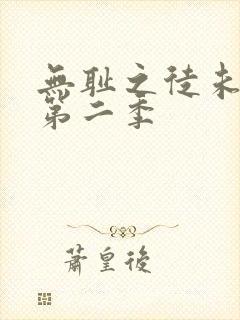 無耻之徒未
第二季
蕭皇後